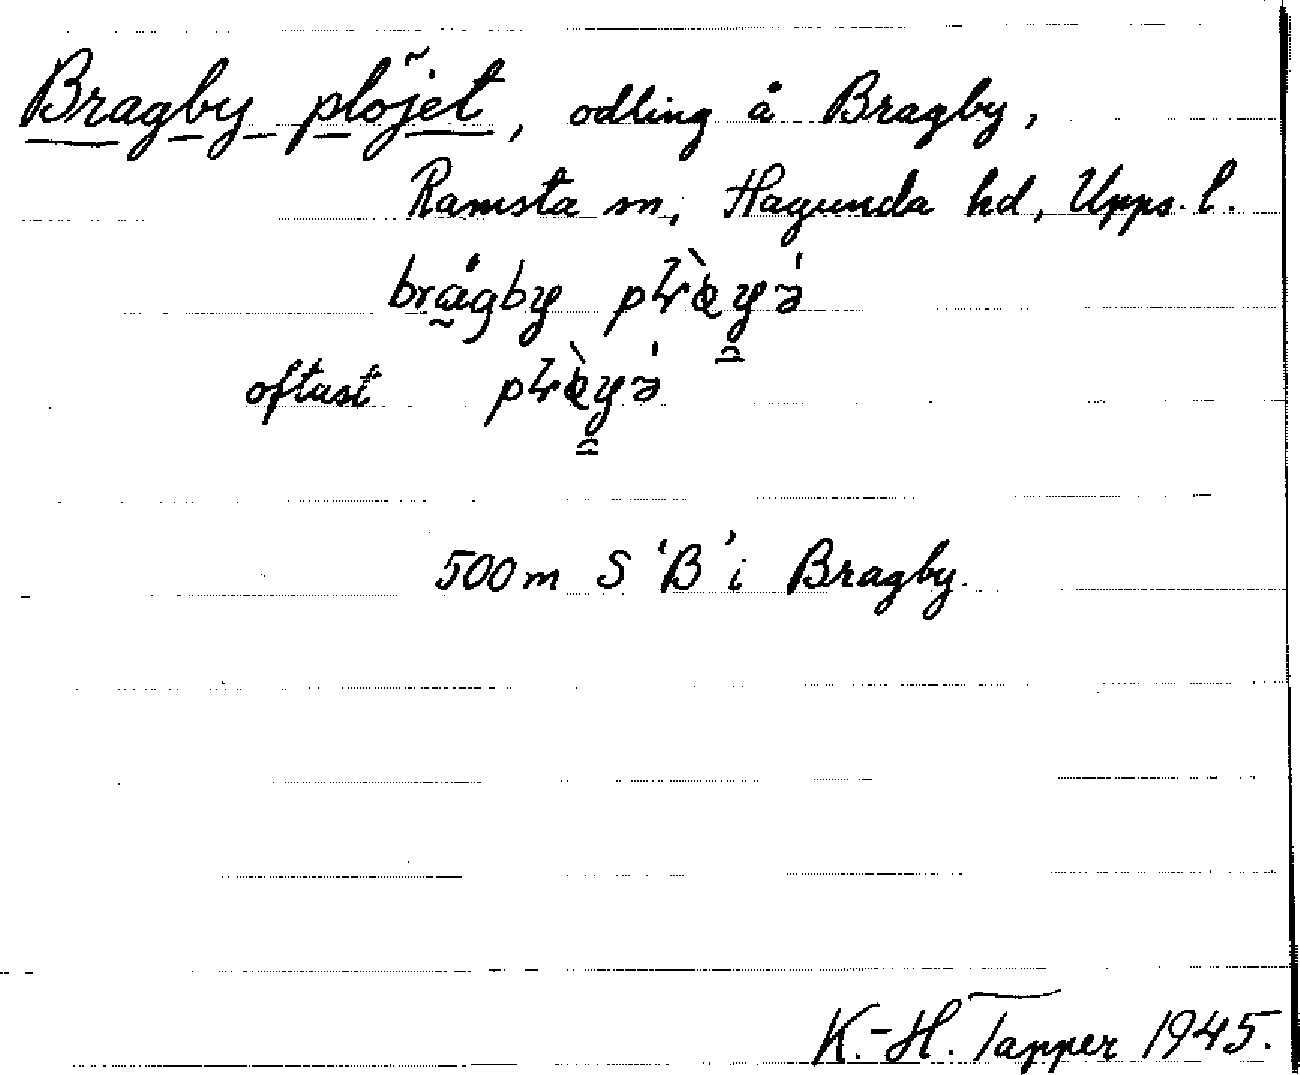 Bragby plöjet, odling å Bragby,
Ramsta sn, Hagunda hd, Upps. l.
brågby
oftast
500 m S 'B' i Bragby.
K.-H. Tapper 1945.